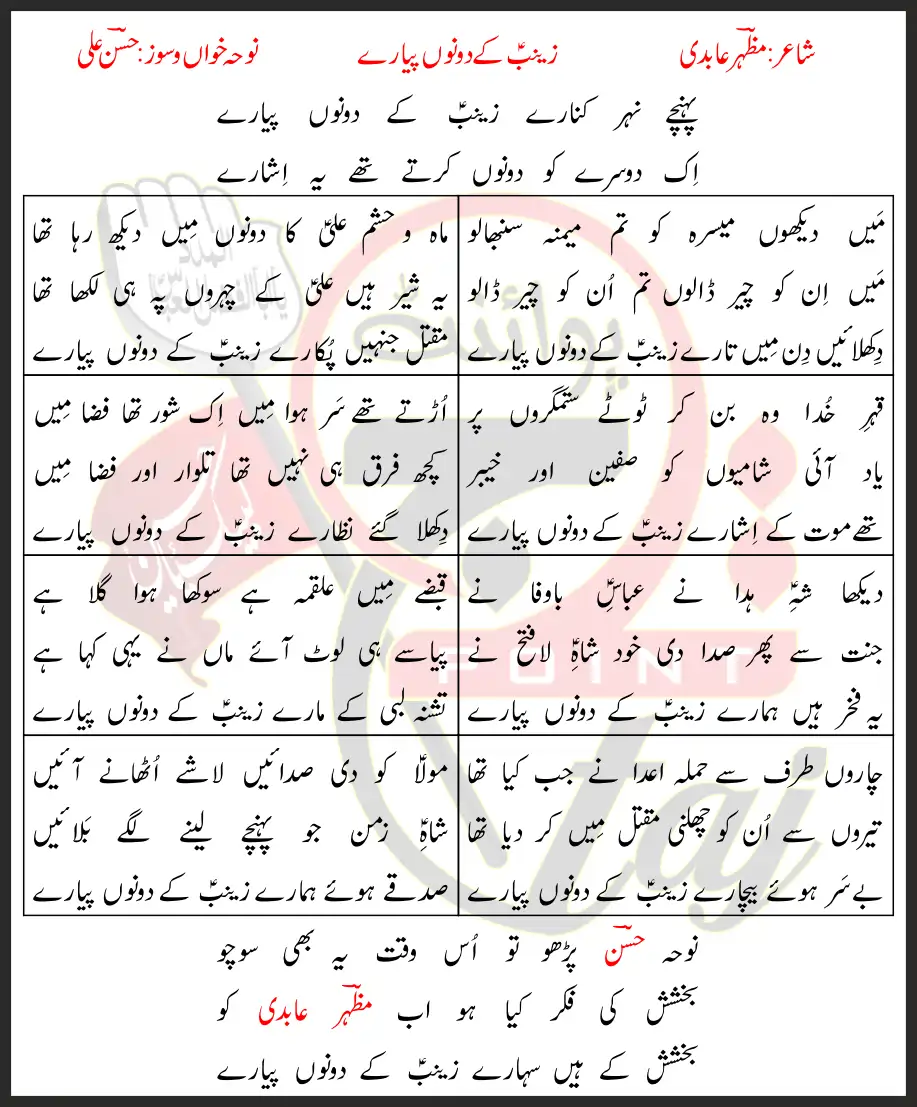 شاعر: مظہرؔ عابدی زینبؑ کے دونوں پیارے نوحہ خواں و سوز: حسنؔ علی
پہنچے نہر کنارے زینبؑ کے دونوں پیارے
اِک دوسرے کو دونوں کرتے تھے یہ اِشارے
مَیں دیکھوں میسرہ کو تم میمنہ سنبھالو
مَیں اِن کو چیر ڈالوں تم اُن کو چیر ڈالو
دِکھلائیں دِن مِیں تارے زینبؑ کے دونوں پیارے
ماہ و حشم علیؑ کا دونوں مِیں دیکھ رہا تھا
یہ شیر ہیں علیؑ کے چہروں پہ ہی لکھا تھا
مقتل جنہیں پُکارے زینبؑ کے دونوں پیارے
قہرِ خُدا وہ بن کر ٹوٹے ستمگروں پر
یاد آئی شامیوں کو صفین اور خیبر
تھے موت کے اِشارے زینبؑ کے دونوں پیارے
اُڑتے تھے سَر ہوا مِیں اِک شور تھا فضا مِیں
کچھ فرق ہی نہیں تھا تلوار اور فضا مِیں
دِکھلا گئے نظارے زینبؑ کے دونوں پیارے
دیکھا شہِؑ ہدا نے عباسِؑ باوفا نے
جنت سے پھر صدا دی خود شاہِؑ لافتح نے
یہ فخر ہیں ہمارے زینبؑ کے دونوں پیارے
قبضے مِیں علقمہ ہے سوکھا ہوا گلا ہے
پیاسے ہی لوٹ آئے ماں نے یہی کہا ہے
تشنہ لبی کے مارے زینبؑ کے دونوں پیارے
چاروں طرف سے حملہ اعدا نے جب کیا تھا
تیروں سے اُن کو چھلنی مقتل مِیں کر دیا تھا
بے سَر ہوئے بیچارے زینبؑ کے دونوں پیارے
مولاؑ کو دی صدائیں لاشے اُٹھانے آئیں
شاہِؑ زمن جو پہنچے لینے لگے بَلائیں
صدقے ہوئے ہمارے زینبؑ کے دونوں پیارے
نوحہ حسنؔ پڑھو تو اُس وقت یہ بھی سوچو
بخشش کی فکر کیا ہو اب مظہرؔ عابدی کو
بخشش کے ہیں سہارے زینبؑ کے دونوں پیارے
POINT
taj